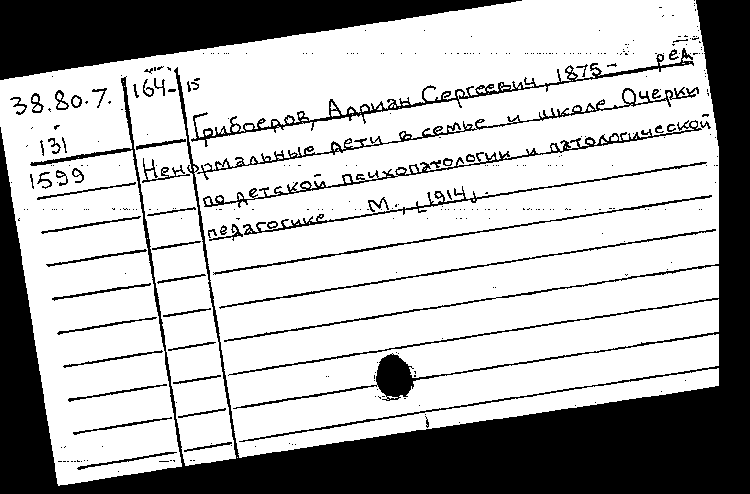 38.80.7. 164- 15
Грибоедов, Адриан Сергеевич, 1875- ред.
131
Ненормальные дети в семье и школе. Очерки
1599
по детской психопатологии и патологической
педагогике. М., [1914].